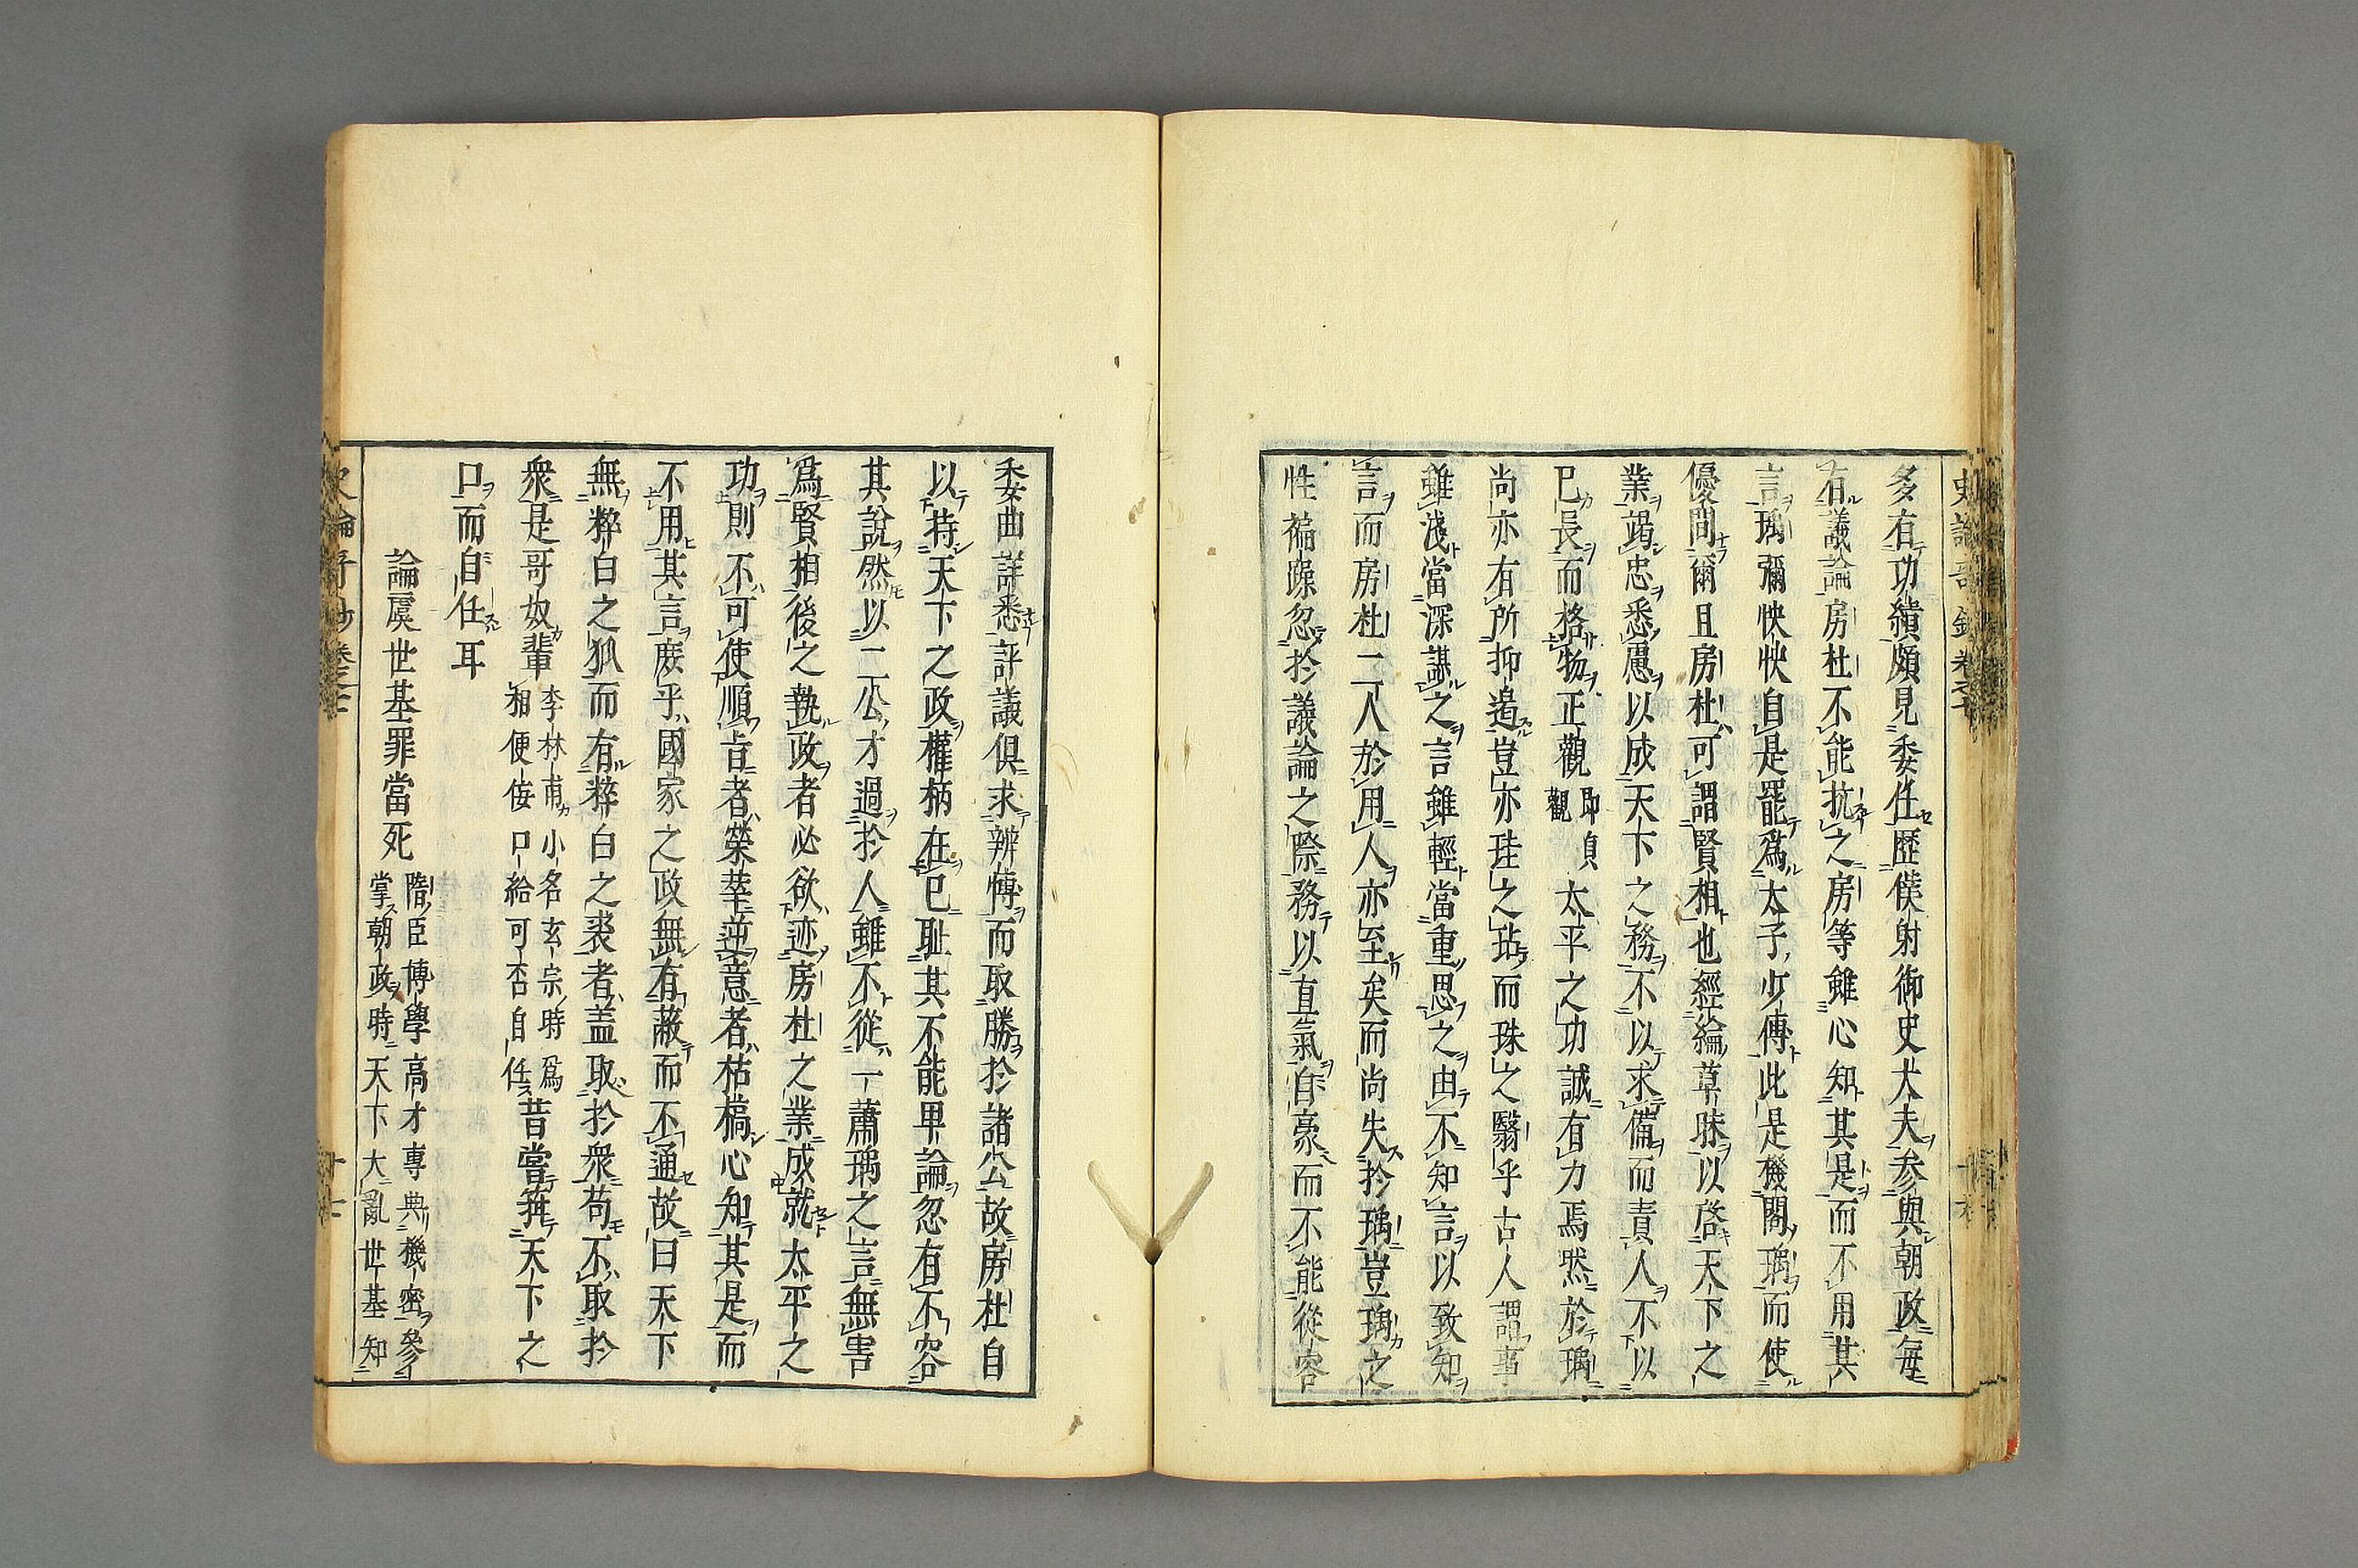 多有功績頗見委任歷僕射御史大夫参與朝政每
有議論房杜不能抗之房等雖心知其是而不用其
言瑀彌怏怏自是罷爲太子少傅此是機關瑀而使
優間爾且房杜可謂賢相也經綸草昧以啓天下之
業竭忠悉慮以成天下之務不以求備而責人不以
已長而格物正觀
即貞
觀
太平之功誠有力焉然於瑀
尚亦有所抑遏豈亦珪之玷而珠之翳乎古人謂事
雖淺當深謀之言雖輕當重思之由不知言以致知
言而房杜二人於用人亦至矣而尚失於瑀豈瑀之
性褊躁忽於議論之際務以直氣自豪而不能從容
委曲詳悉評議俱求辨博而取勝於諸公故房杜自
以持天下之政權柄在已耻其不能卑論忽有不容
其說然以二公才過於人雖不從一蕭瑀之言無害
爲賢相後之執政者必欲迹房杜之業成就太平之
功則不可使順旨者榮華逆意者枯槁心知其是而
不用其言庻乎國家之政無有蔽而不通故曰天下
無粹白之狐而有粹白之裘者盖取於衆苟不取於
衆是哥奴輩
李林甫小名玄宗時爲
相便佞口給可否自任
昔嘗箝天下之
口而自任耳
論虞世基罪當死
隋臣博學高才專典機密參
掌朝政時天下大亂世基知